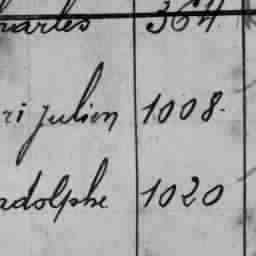 harles 364
ri Julien 1008.
adolphe 1020